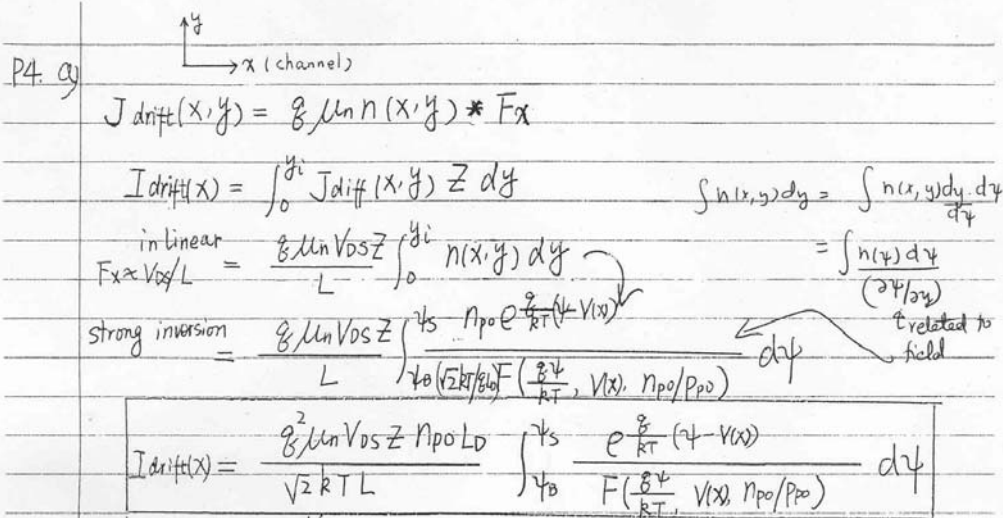 y
x (channel)
P4. a)
J drift(x,y) = q μn n(x,y) * Fx
I drift(x) = ∫₀^yi Jdiff (x,y) Z dy
∫ n(x,y) dy = ∫ n(x,y) dy/dψ · dψ
in linear
Fx ≈ VDS/L = q μn VDS Z / L ∫₀^yi n(x,y) dy
= ∫ n(ψ) dψ / (∂ψ/∂y)
related to field
strong inversion
= q μn VDS Z / L ∫_ψB^ψS npo e^{q/kT (ψ - V(x))} / ((√2 kT/qLD) F(qψ/kT, V(x), npo/ppo)) dψ
I drift(x) = q² μn VDS Z npo LD / (√2 kT L) ∫_ψB^ψS e^{q/kT (ψ - V(x))} / F(qψ/kT, V(x), npo/ppo) dψ